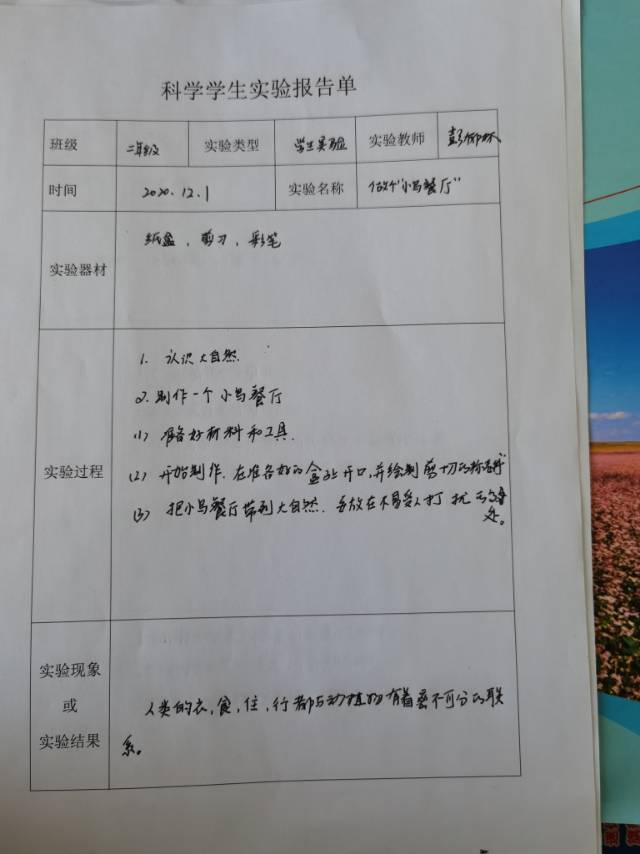 科学学生实验报告单
班级 二年级 实验类型 学生实验 实验教师
时间 2020.12.1 实验名称 做个“小鸟餐厅”
实验器材 纸盒,剪刀,彩笔
1. 认识大自然.
2. 制作一个小鸟餐厅
(1) 准备好材料和工具.
实验过程 (2) 开始制作.在准备好的盒子上开口,并绘制剪切的
(3) 把小鸟餐厅带到大自然.存放在不易受人打扰的
处。
实验现象
或
实验结果
人类的衣,食,住,行都与动植物有着密不可分的联
系。